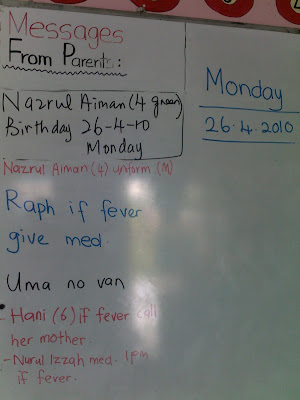 Messages
From Parents:
Nazrul Aiman (4 green)
Birthday 26-4-10
Monday
Nazrul Aiman (4) uniform (M)
Raph if fever
give med.
Uma no van
- Hani (6) if fever call
her mother.
- Nurul Izzah med. 1pm
if fever.
Monday
26.4.2010